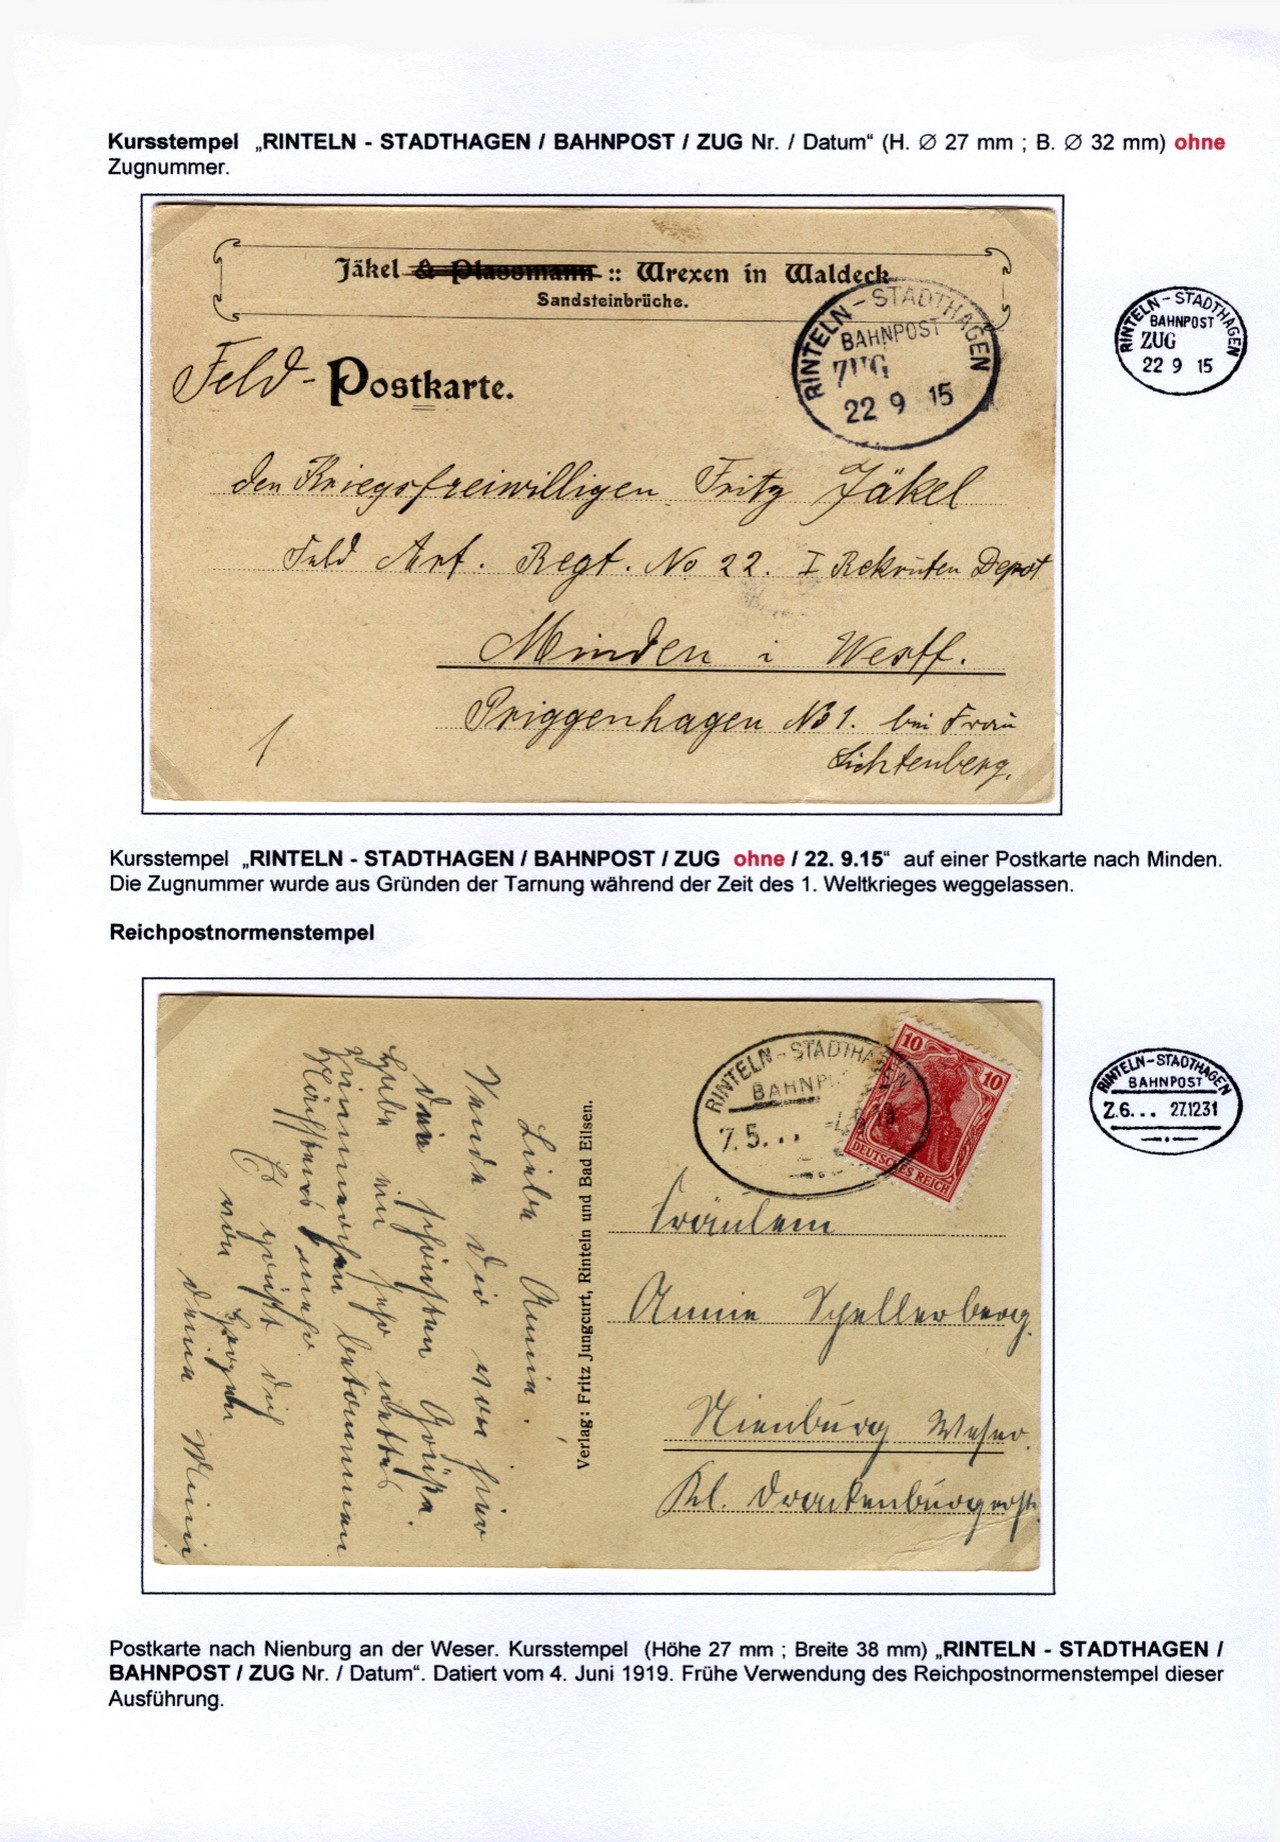 Kursstempel „RINTELN - STADTHAGEN / BAHNPOST / ZUG Nr. / Datum“ (H. Ø 27 mm ; B. Ø 32 mm) ohne
Zugnummer.
Jäkel & Plassmann :: Wrexen in Waldeck
Sandsteinbrüche.
RINTELN - STADTHAGEN
BAHNPOST
ZUG
22 9 15
RINTELN - STADTHAGEN
BAHNPOST
ZUG
22 9 15
Feld - Postkarte.
den Kriegsfreiwilligen Fritz Jäkel
Feld Art. Regt. No 22. I Rekruten Depot
Minden i Westf.
Priggenhagen No 1. bei Frau
Lichtenberg.
Kursstempel „RINTELN - STADTHAGEN / BAHNPOST / ZUG ohne / 22. 9.15“ auf einer Postkarte nach Minden.
Die Zugnummer wurde aus Gründen der Tarnung während der Zeit des 1. Weltkrieges weggelassen.
Reichpostnormenstempel
RINTELN - STADTHAGEN
BAHNP
Z. 5. . .
10 10
DEUTSCHES REICH
RINTELN-STADTHAGEN
BAHNPOST
Z.6... 27.12.31
Liebe Annie.
Sende dir von hier
die schönsten Grüße.
Habe ein sehr nettes
Zimmerchen bekommen
Nächstens mehr.
Es grüßt dich
von Herzen
deine Mimi
Verlag: Fritz Jungcurt, Rinteln und Bad Eilsen.
Fräulein
Annie Schellerberg.
Nienburg Weser.
Kl. Drackenburgerstr.
Postkarte nach Nienburg an der Weser. Kursstempel (Höhe 27 mm ; Breite 38 mm) „RINTELN - STADTHAGEN /
BAHNPOST / ZUG Nr. / Datum“. Datiert vom 4. Juni 1919. Frühe Verwendung des Reichpostnormenstempel dieser
Ausführung.